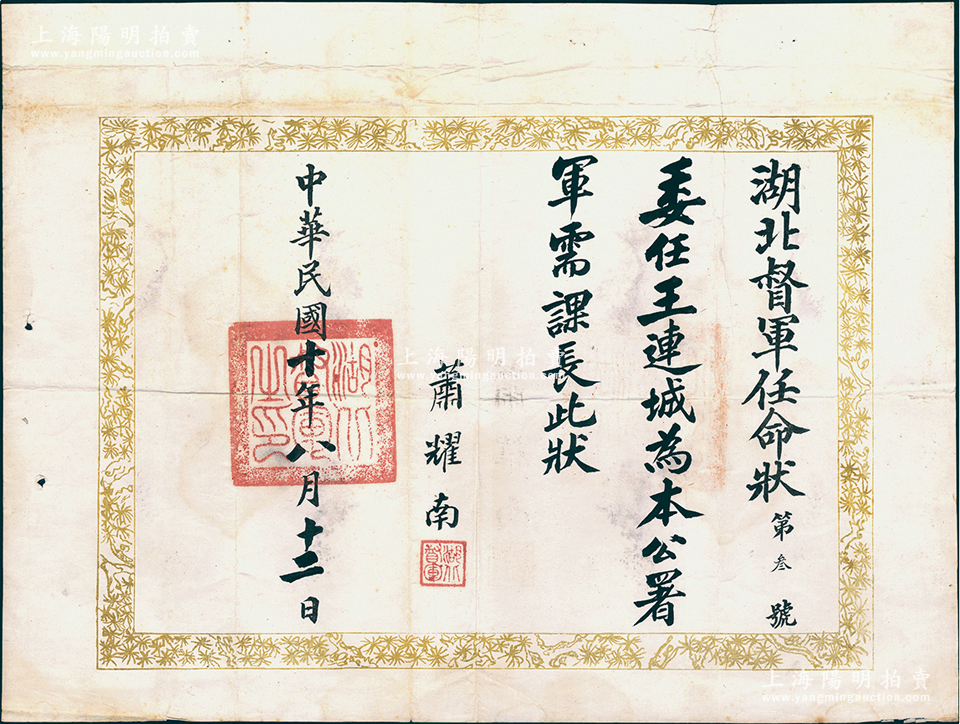 湖北督軍任命狀 第叁號
委任王連城為本公署
軍需課長此狀
蕭耀南
湖北督軍
中華民國十年八月十二日
湖北督軍之印
上海陽明拍賣
www.yangmingauction.com
上海陽明拍賣
www.yangmingauction.com
上海陽明拍賣
www.yangmingauction.com